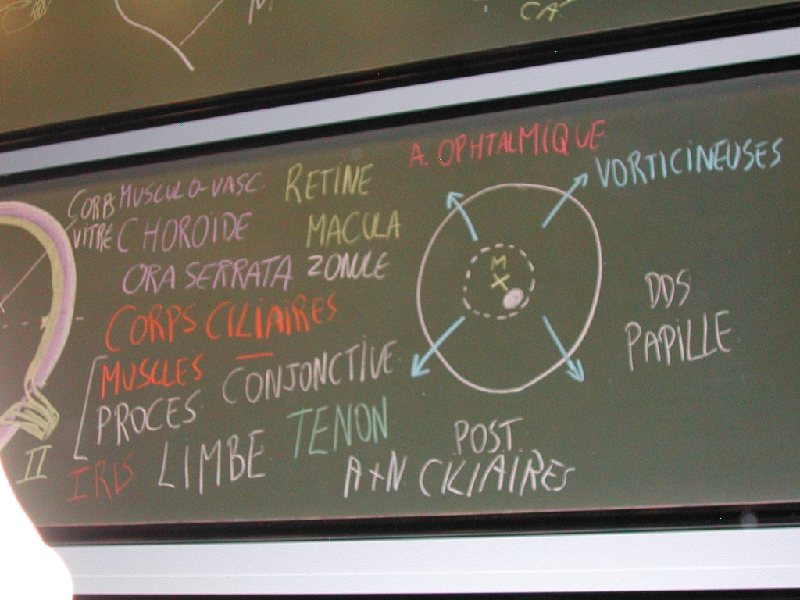 CA
CORPS MUSCULO-VASC RETINE
VITRE CHOROÏDE MACULA
ORA SERRATA ZONULE
CORPS CILIAIRES
MUSCLES CONJONCTIVE
PROCES
TENON
IRIS LIMBE
II
A. OPHTALMIQUE
VORTICINEUSES
M
DDS
PAPILLE
POST
A+N CILIAIRES